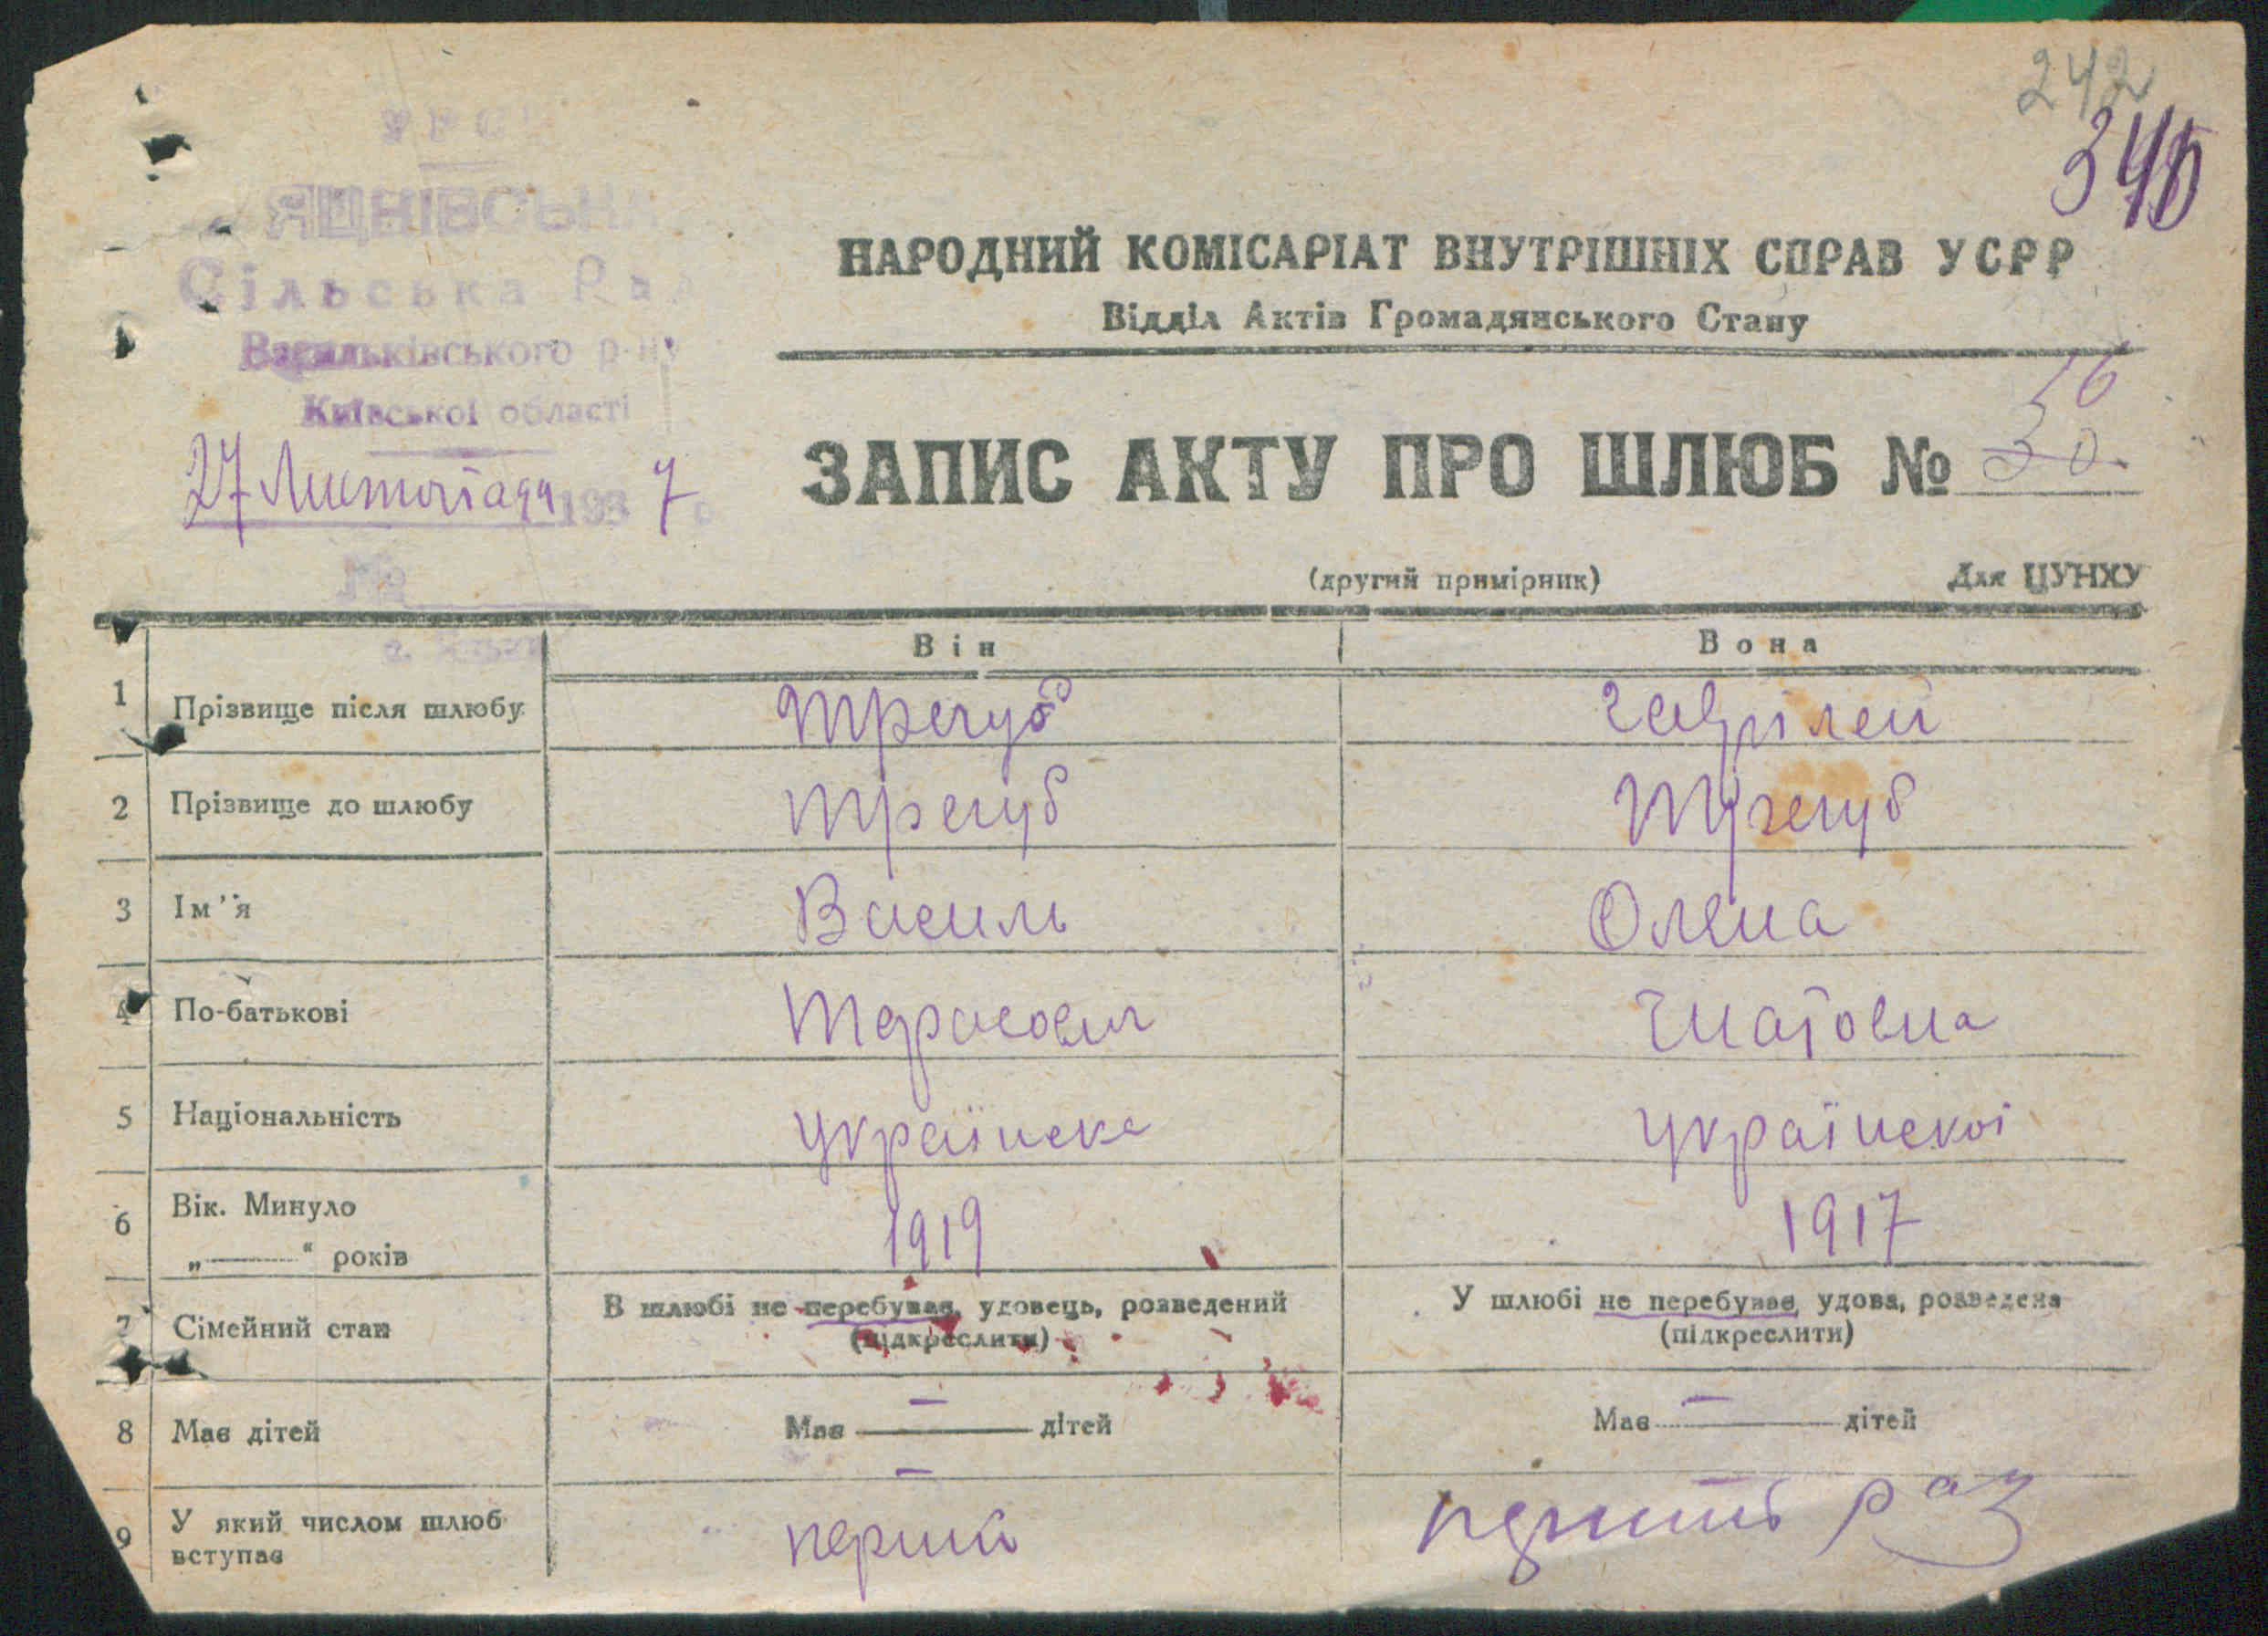 242
340
УРСР
ЯЦНІВСЬКА
Сільська Рада
Васильківського р-ну
Київської області
27 Листопада 1937
№
НАРОДНИЙ КОМІСАРІАТ ВНУТРІШНІХ СПРАВ УСРР
Відділ Актів Громадянського Стану
ЗАПИС АКТУ ПРО ШЛЮБ №
(другий примірник) Для ЦУНХУ
Він Вона
1 Прізвище після шлюбу Трегуб
2 Прізвище до шлюбу Трегуб Трегуб
3 Ім'я Василь Олена
4 По-батькові Тарасович Гнатовна
5 Національність українска українскої
6 Вік. Минуло
„——“ років 1919 1917
7 Сімейний стан В шлюбі не перебував, удовець, розведений У шлюбі не перебував, удова, розведена
(підкреслити) (підкреслити)
8 Має дітей Має — дітей Має — дітей
9 У який числом шлюб вступає перший раз